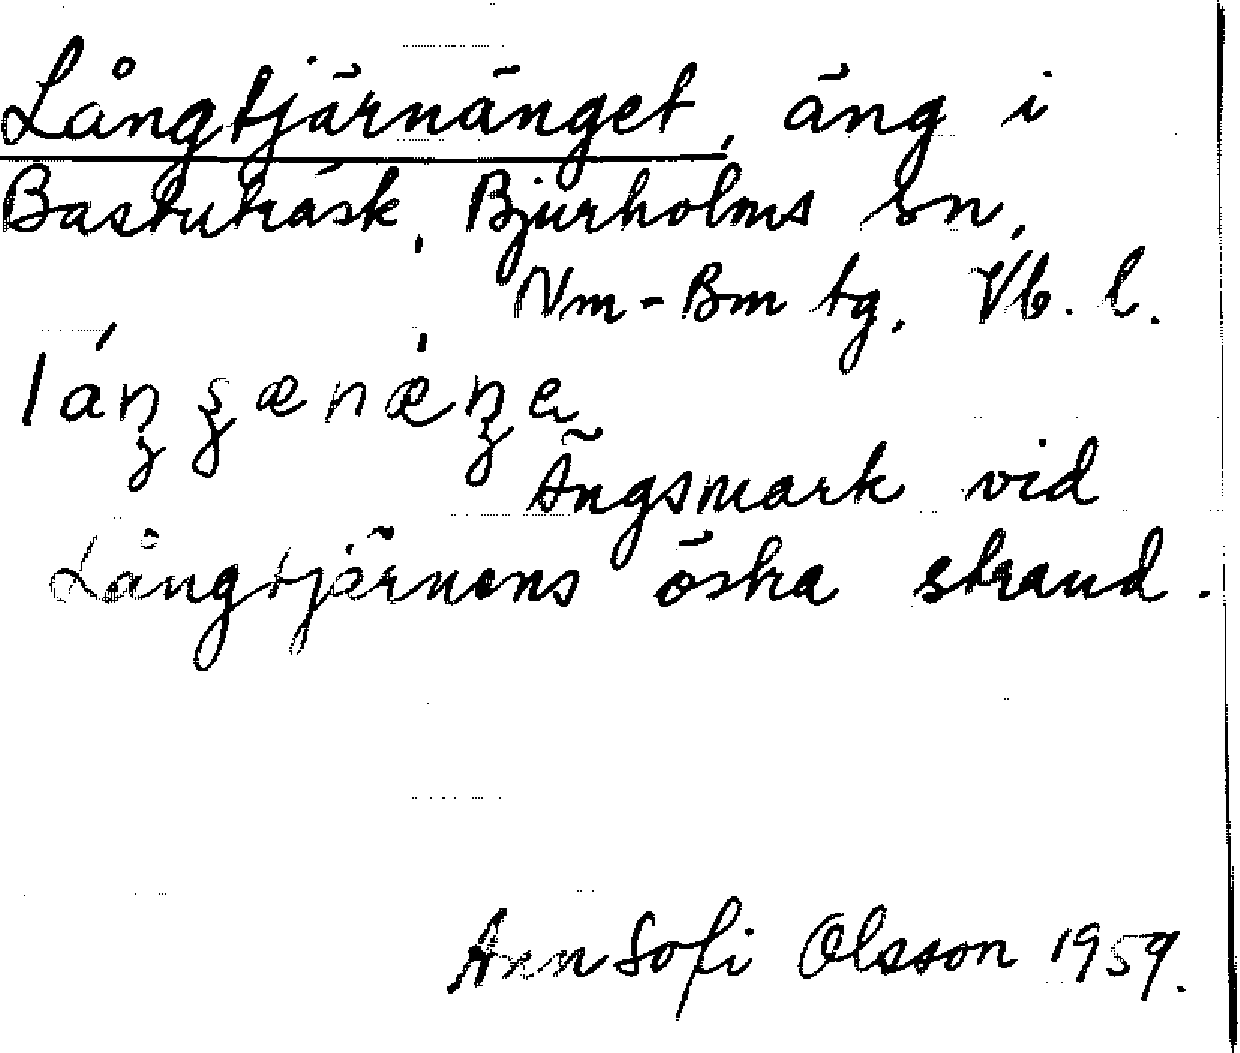 Långtjärnänget, äng i
Bastuträsk, Bjurholms sn,
Nm-Bm tg, Vb. l.
Ängsmark vid
Långtjärnens östra strand.
Ann Sofi Olsson 1959.